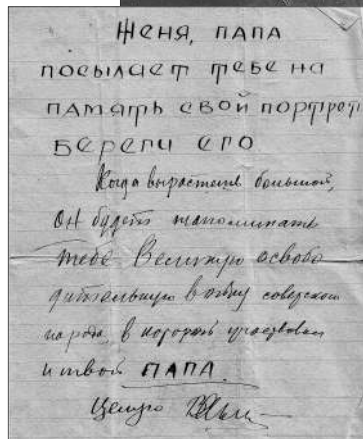 Женя, ПАПА
посылает тебе на
память свой портрет
Береги его
Когда вырастешь большой,
он будет напоминать
тебе Великую освобо
дительную войну советского
народа, в которой участвовал
и твой ПАПА.
Целую